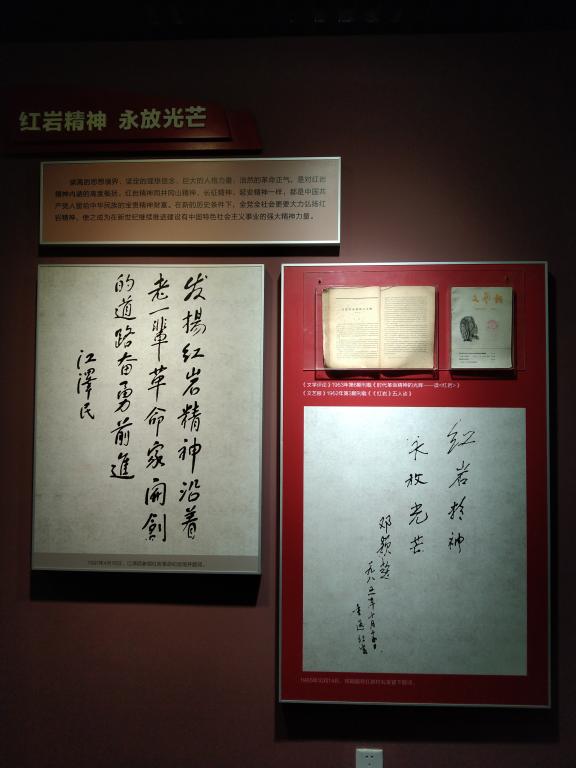 红岩精神 永放光芒
崇高的思想境界、坚定的理想信念、巨大的人格力量、浩然的革命正气，是对红岩
精神内涵的高度概括。红岩精神同井冈山精神、长征精神、延安精神一样，都是中国共
产党人留给中华民族的宝贵精神财富。在新的历史条件下，全党全社会更要大力弘扬红
岩精神，使之成为在新世纪继续推进建设有中国特色社会主义事业的强大精神力量。
发揚红岩精神沿着
老一輩革命家開創
的道路奋勇前進
江澤民
文艺报
《文学评论》1963年第6期刊载《时代革命精神的光辉——读<红岩>》
《文艺报》1962年第3期刊载《《红岩》五人谈》
红岩精神
永放光芒
邓颖超
一九八五年十月十四日
重返红岩
1985年10月14日，邓颖超在红岩村礼堂留下题词。